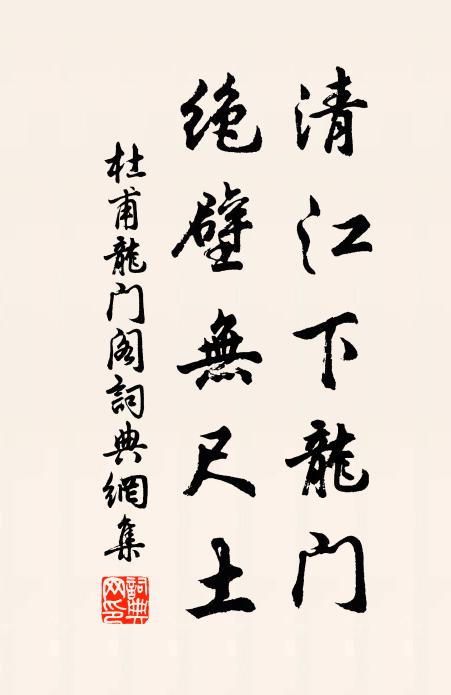 清江下龍门
绝壁無尺土
杜甫龍门阁詞典網集
詞典网印